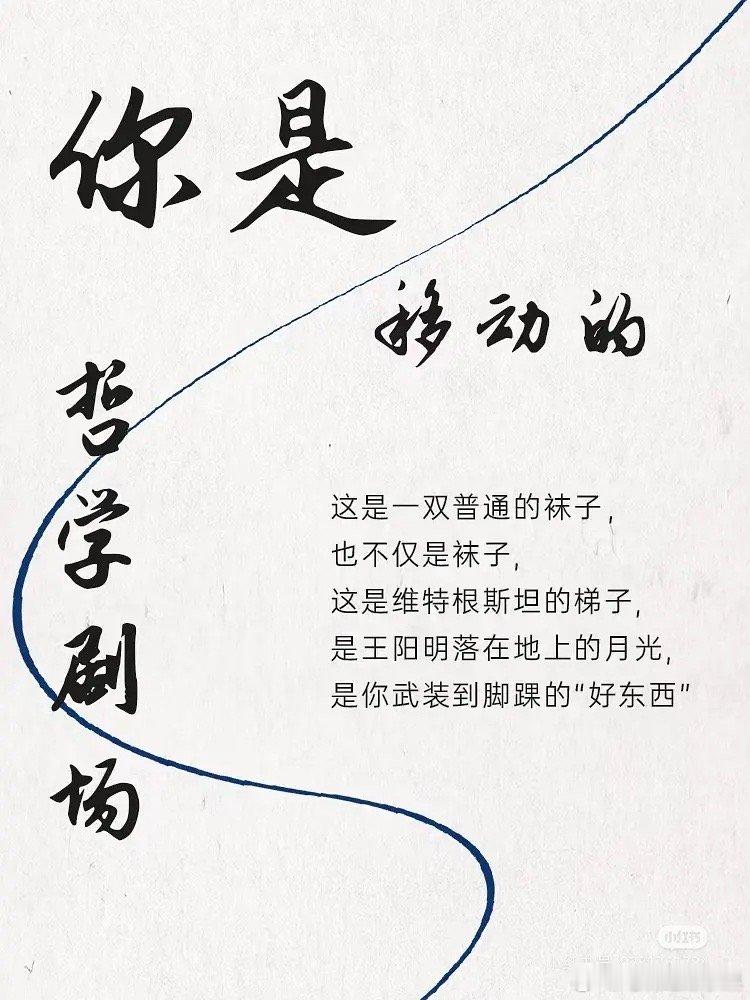 你是
移动的
哲学剧场
这是一双普通的袜子，
也不仅是袜子，
这是维特根斯坦的梯子，
是王阳明落在地上的月光，
是你武装到脚踝的“好东西”
小红书